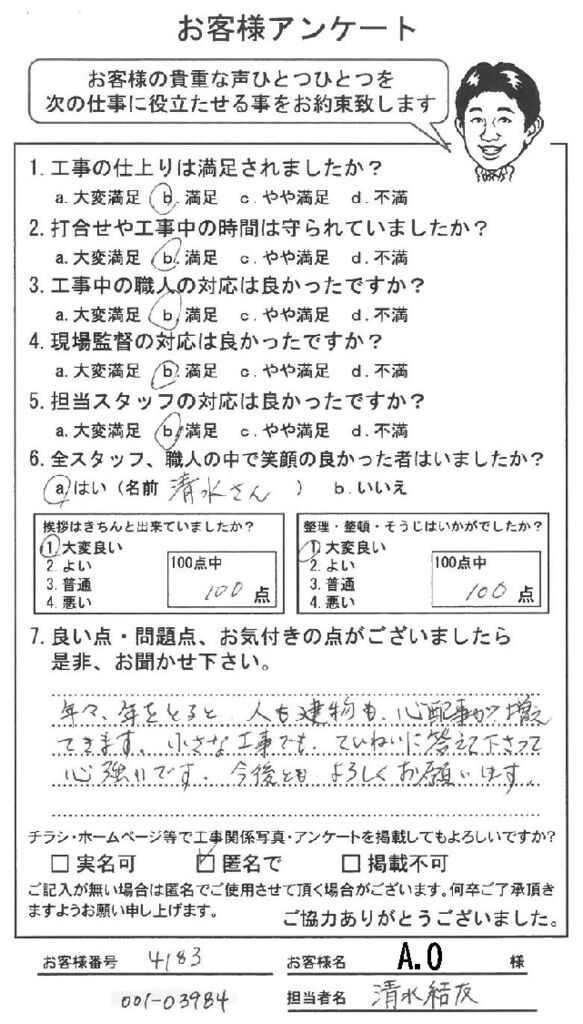 お客様アンケート
お客様の貴重な声ひとつひとつを
次の仕事に役立たせる事をお約束致します
1. 工事の仕上りは満足されましたか？
a. 大変満足 b. 満足 c. やや満足 d. 不満
2. 打合せや工事中の時間は守られていましたか？
a. 大変満足 b. 満足 c. やや満足 d. 不満
3. 工事中の職人の対応は良かったですか？
a. 大変満足 b. 満足 c. やや満足 d. 不満
4. 現場監督の対応は良かったですか？
a. 大変満足 b. 満足 c. やや満足 d. 不満
5. 担当スタッフの対応は良かったですか？
a. 大変満足 b. 満足 c. やや満足 d. 不満
6. 全スタッフ、職人の中で笑顔の良かった者はいましたか？
a. はい（名前 清水さん ） b. いいえ
挨拶はきちんと出来ていましたか？
1. 大変良い
2. よい
3. 普通
4. 悪い
100点中
100 点
整理・整頓・そうじはいかがでしたか？
1. 大変良い
2. よい
3. 普通
4. 悪い
100点中
100 点
7. 良い点・問題点、お気付きの点がございましたら
是非、お聞かせ下さい。
年々、年をとると 人も建物も、心配事が増え
てきます。小さな工事でも、ていねいに答えて下さって
心強いです。今後とも よろしくお願いします。
チラシ・ホームページ等で工事関係写真・アンケートを掲載してもよろしいですか？
□ 実名可 ☑ 匿名で □ 掲載不可
ご記入が無い場合は匿名でご使用させて頂く場合がございます。何卒ご了承頂き
ますようお願い申し上げます。
ご協力ありがとうございました。
お客様番号 4183 お客様名 A.O 様
001-03984 担当者名 清水結友